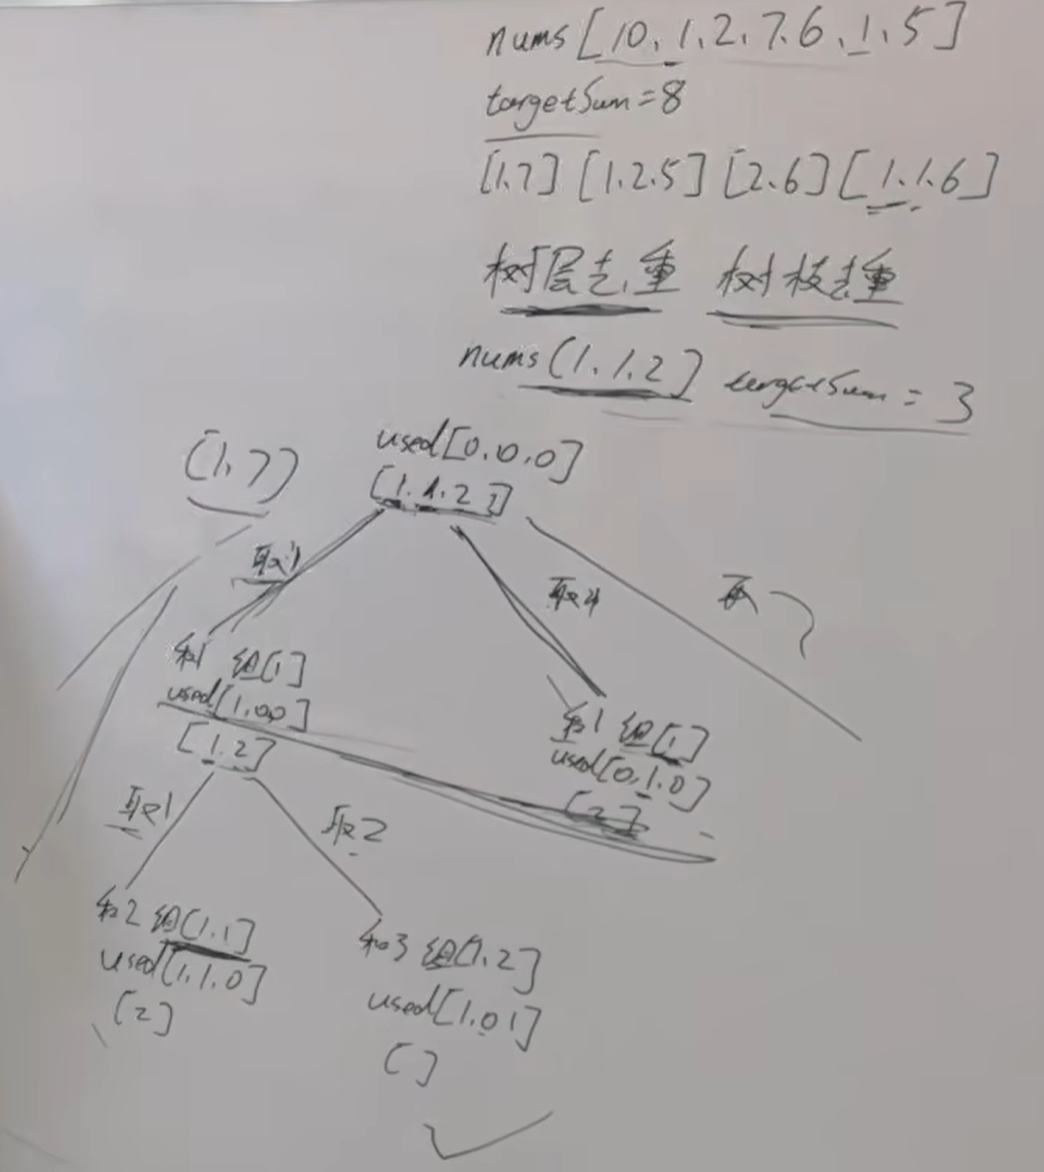 nums[10.1.2.7.6.1.5]
targetSum=8
[1.7] [1.2.5] [2.6] [1.1.6]
树层去重 树枝去重
nums(1.1.2] targetSum = 3
used[0.0.0]
(1.7)
[1.1.2]
取1
取1
取
和1 组[1]
used[1.00]
[1.2]
和1 组[1]
used[0.1.0]
[2]
取1
取2
和2 组(1.1]
used[1.1.0]
[2]
和3 组[1.2]
used[1.01]
[]